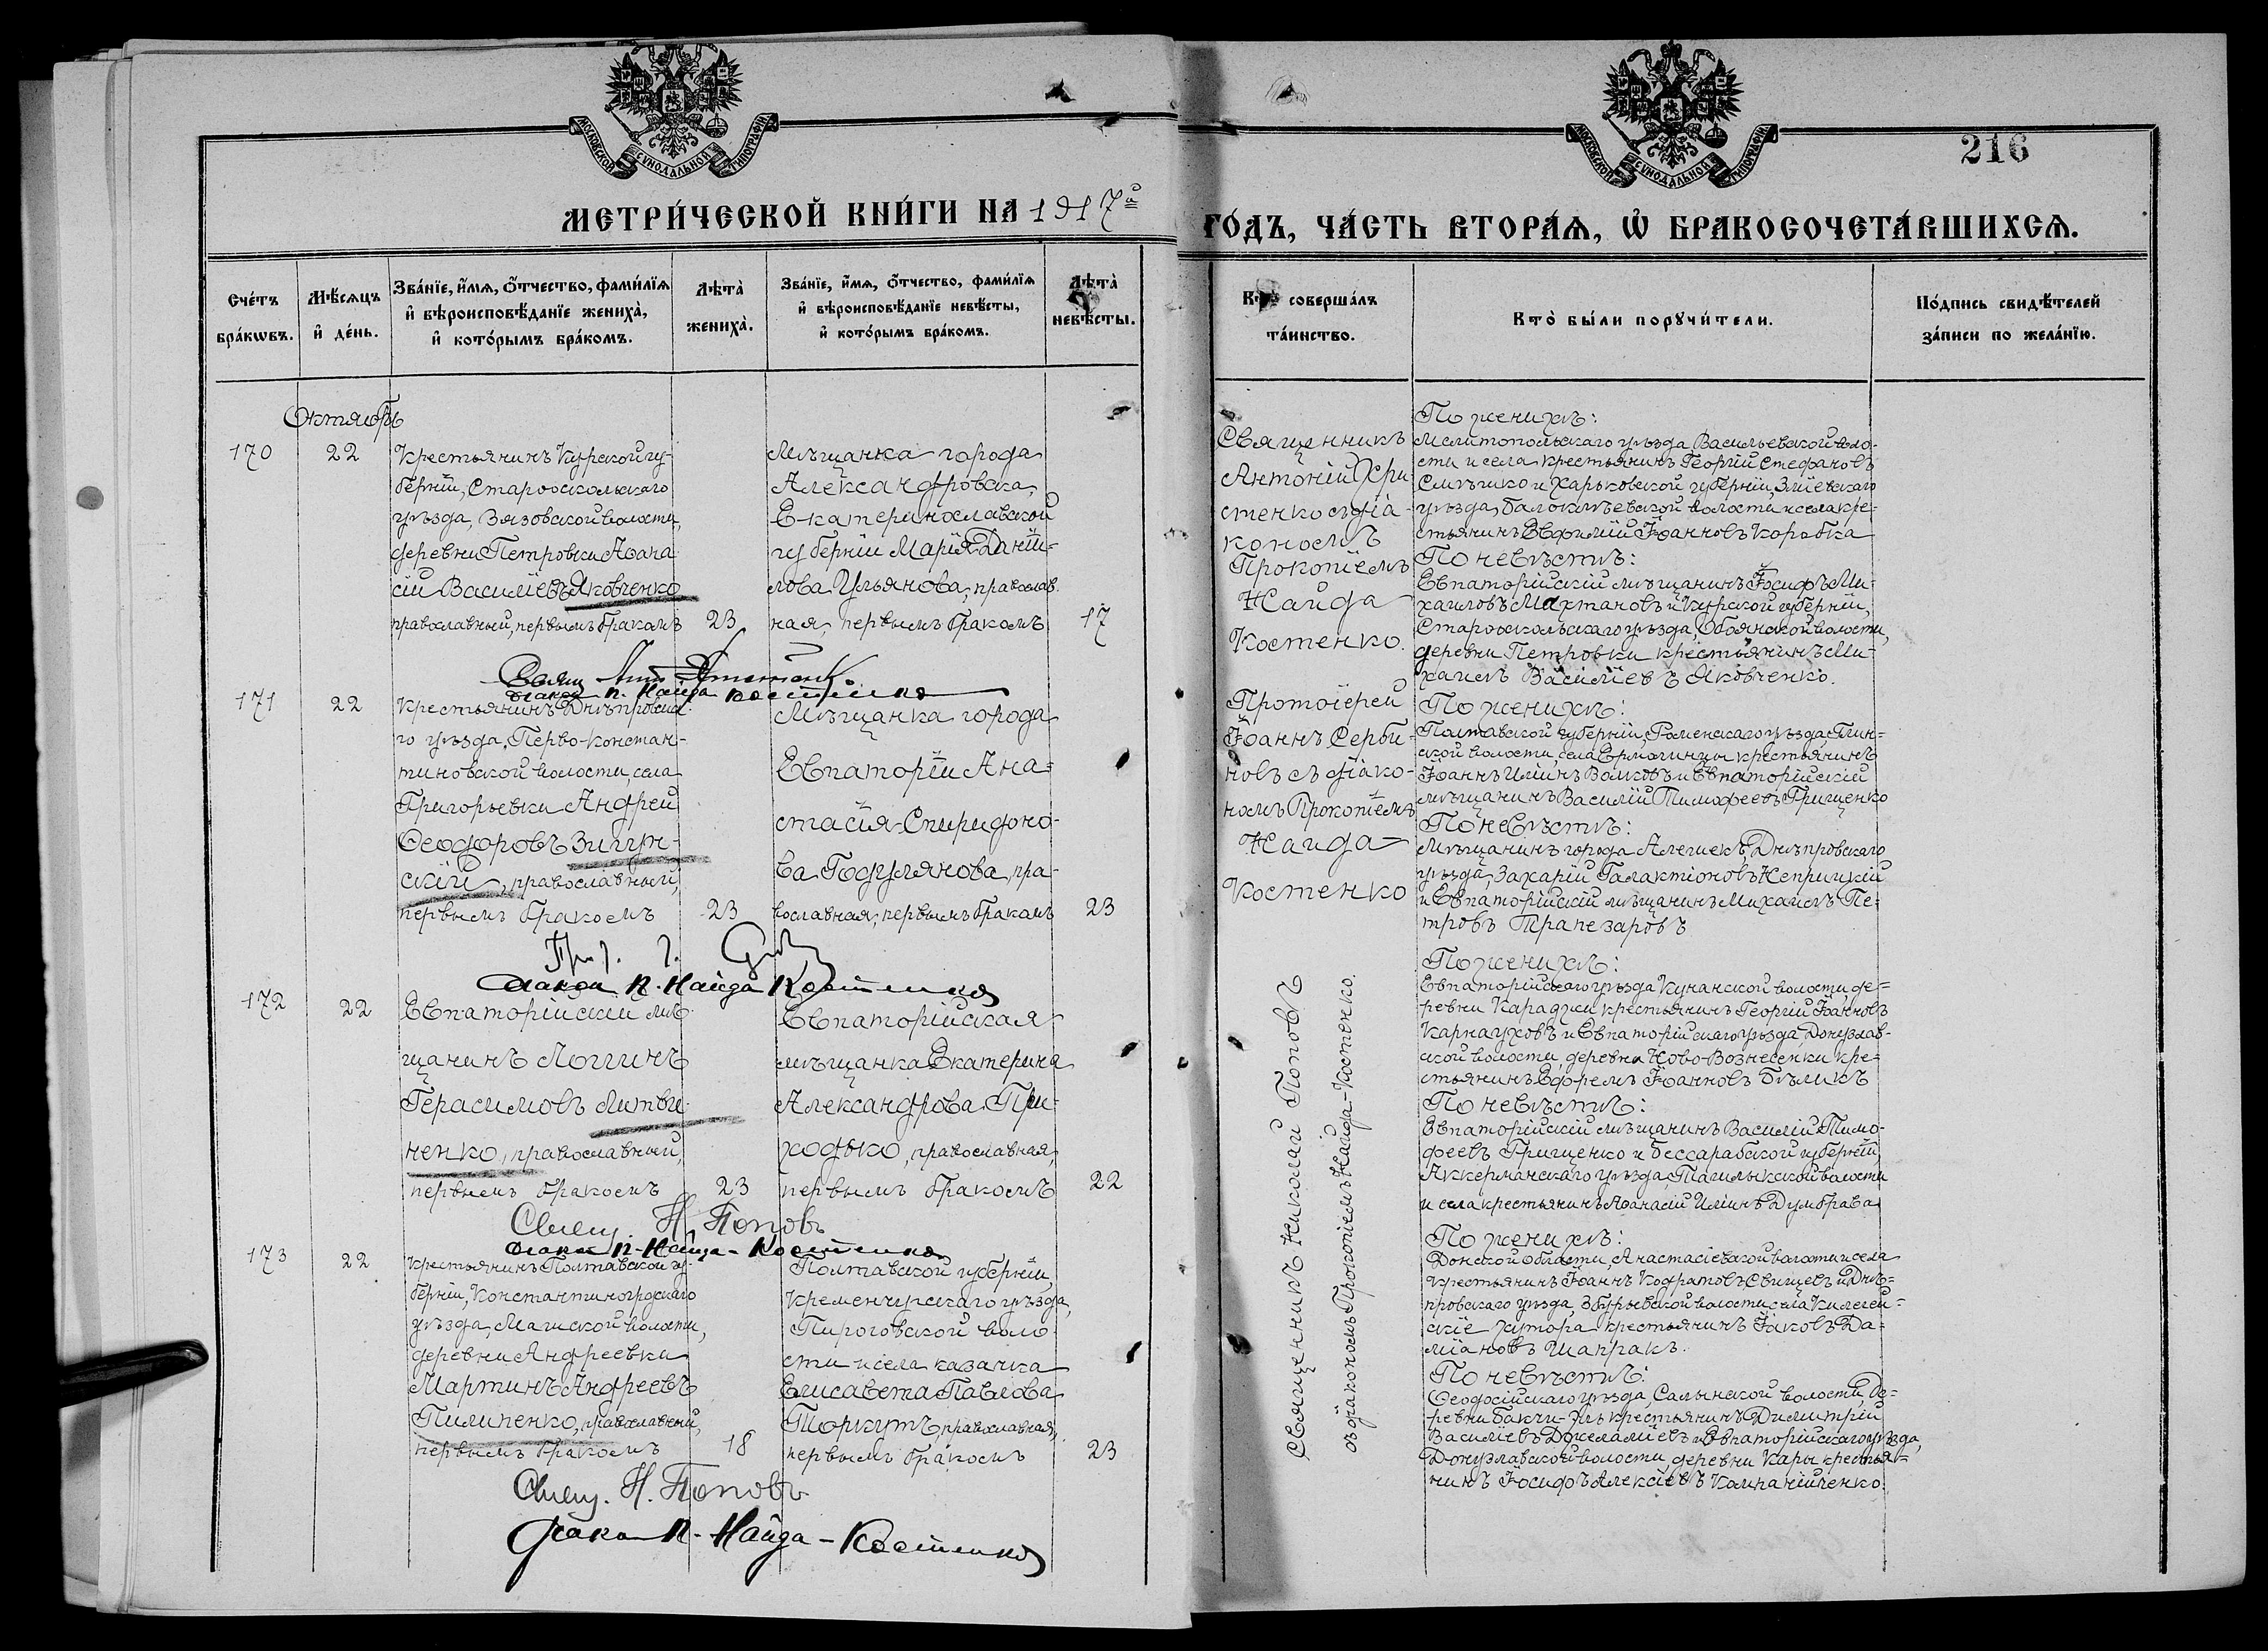 МОСКОВСКОЙ СѴНОДАЛЬНОЙ ТИПОГРАФІИ
МОСКОВСКОЙ СѴНОДАЛЬНОЙ ТИПОГРАФІИ
216
МЕТРИ́ЧЕСКОЙ КНИ́ГИ НА 1917й
ГО́ДЪ, ЧА́СТЬ ВТОРА́Ѧ, Ѽ БРАКОСОЧЕТА́ВШИХСѦ.
Сче́тъ бра́кѡвъ.
Мѣ́сѧцъ и҆ де́нь.
Зва́нїе, и҆́мѧ, ѻ҆́тчество, фами́лїѧ
и҆ вѣроисповѣ́данїе жениха̀,
и҆ кото́рымъ бра́комъ.
Лѣта̀ жениха̀.
Зва́нїе, и҆́мѧ, ѻ҆́тчество, фами́лїѧ
и҆ вѣроисповѣ́данїе невѣ́сты,
и҆ кото́рымъ бра́комъ.
Лѣта̀ невѣ́сты.
Кто̀ соверша́лъ
та́инство.
Кто̀ бы́ли порꙋчи́тели.
По́дпись свидѣ́телей
за́писи по жела́нїю.
Октябрь
170
22
Крестьянинъ Курской гу-
берніи, Старооскольскаго
уѣзда, Вязовской волости,
деревни Петровки Аѳана
сій Василіевъ Яковченко
православный, первымъ бракомъ
23
Мѣщанка города
Александровска,
Екатеринославской
губерніи Марія Даніи-
лова Ульянова, православ.
ная, первымъ бракомъ
17
Священникъ
Антоній Хри
стенко съ діа-
кономъ
Прокопіемъ
Найда
Костенко.
По женихѣ:
Мелитопольскаго уѣзда, Васильевской воло-
сти и села крестьянинъ Георгій Стефановъ
Смѣшко и Харьковской губерніи, Зміевскаго
уѣзда, Балаклѣевской волости и села кре-
стьянинъ Евфимій Іоанновъ Коробка
По невѣстѣ:
Евпаторійскій мѣщанинъ Іосифъ Ми-
хаиловъ Махтановъ и Курской губерніи,
Старооскольскаго уѣзда, Обоянской волости,
деревни Петровки крестьянинъ Ми-
хаилъ Василіевъ Яковченко.
діакон П. Найда Костенко
171
22
Крестьянинъ Днѣпровска-
го уѣзда, Перво-Констан-
тиновской волости, села
Григорьевки Андрей
Ѳеодоровъ Зигун-
скій, православный,
первымъ бракомъ
23
Мѣщанка города
Евпаторіи Ана-
стасія Спиридоно-
ва Подулянова, пра-
вославная, первымъ бракомъ
23
Протоіерей
Іоаннъ Серби-
новъ съ діако-
номъ Прокопіемъ
Найда
Костенко
По женихѣ:
Полтавской губерніи, Роменскаго уѣзда, Глин-
ской волости, села Ермогинцы крестьянинъ
Іоаннъ Иліинъ Волковъ и Евпаторійскій
мѣщанинъ Василій Тимофеевъ Грищенко
По невѣстѣ:
Мѣщанинъ города Алешекъ, Днѣпровскаго
уѣзда, Захарій Галактіоновъ Неприцкій
и Евпаторійскій мѣщанинъ Михаилъ Пе-
тровъ Трапезаровъ
діакон П. Найда Костенко
172
22
Евпаторійскій мѣ-
щанинъ Логгинъ
Герасимовъ Литви-
ненко, православный,
первымъ бракомъ
23
Евпаторійская
мѣщанка Екатерина
Александрова При-
ходько, православная,
первымъ бракомъ
22
Священникъ Николай Поповъ
съ діакономъ Прокопіемъ Найда-Костенко.
По женихѣ:
Евпаторійскаго уѣзда Кунанской волости, де-
ревни Караджи крестьянинъ Георгій Іоанновъ
Карнауховъ и Евпаторійскаго уѣзда, Донузлав-
ской волости, деревни Ново-Вознесенки, кре-
стьянинъ Ефремъ Іоанновъ Бѣликъ
По невѣстѣ:
Евпаторійскій мѣщанинъ Василій Тимо-
феевъ Грищенко и Бессарабской губерніи,
Аккерманскаго уѣзда, волости
и села крестьянинъ Аѳанасій Иліинъ Думбрава
Свящ. Н. Поповъ
діакон П. Найда-Костенко
173
22
Крестьянинъ Полтавской гу-
берніи, Константиноградскаго
уѣзда, волости,
деревни Андреевки
Мартинъ Андреевъ
Пилипенко, православный,
первымъ бракомъ
18
Полтавской губерніи,
Кременчугскаго уѣзда,
Пироговской воло-
сти и села казачка
Елисавета Павлова
Торкутъ, православная,
первымъ бракомъ
23
По женихѣ:
Донской области, Анастасіевской волости и села
крестьянинъ Іоаннъ Кодратовъ Свищевъ и Днѣ-
провскаго уѣзда, Збурьевской волости, села Килегей-
скіе хутора крестьянинъ Іаковъ Да-
міановъ Шапракъ.
По невѣстѣ:
Ѳеодосійскаго уѣзда, Салынской волости, де-
ревни крестьянинъ Димитрій
Василіевъ Джелаліевъ и Евпаторійскаго уѣзда,
Донузлавской волости, деревни Кары крестья-
нинъ Іосифъ Алексіевъ Компанійченко.
Свящ. Н. Поповъ
діакон П. Найда-Костенко